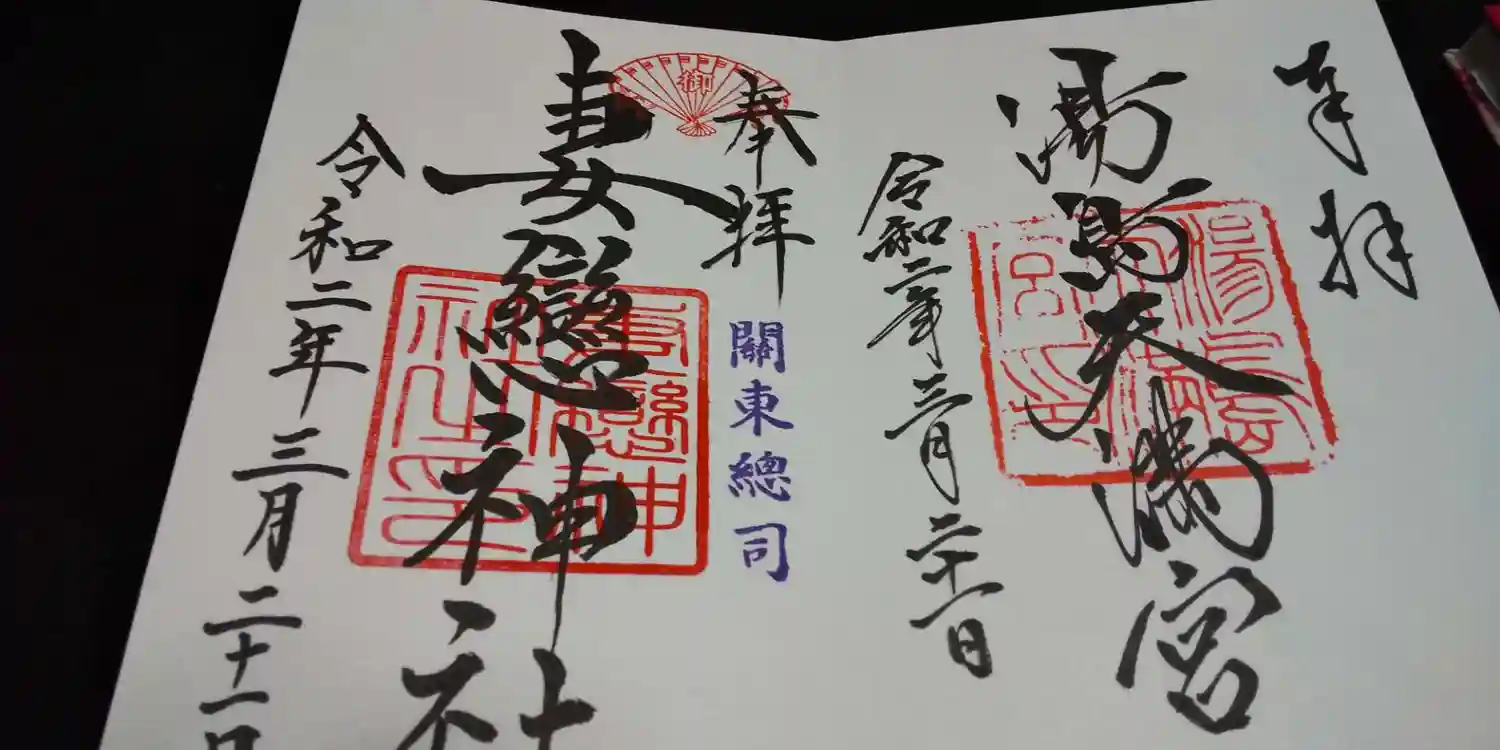 奉拝
湯島天満宮
令和二年三月二十一日
奉拝
御
關東總司
妻戀神社
妻戀神社之印
令和二年三月二十一日